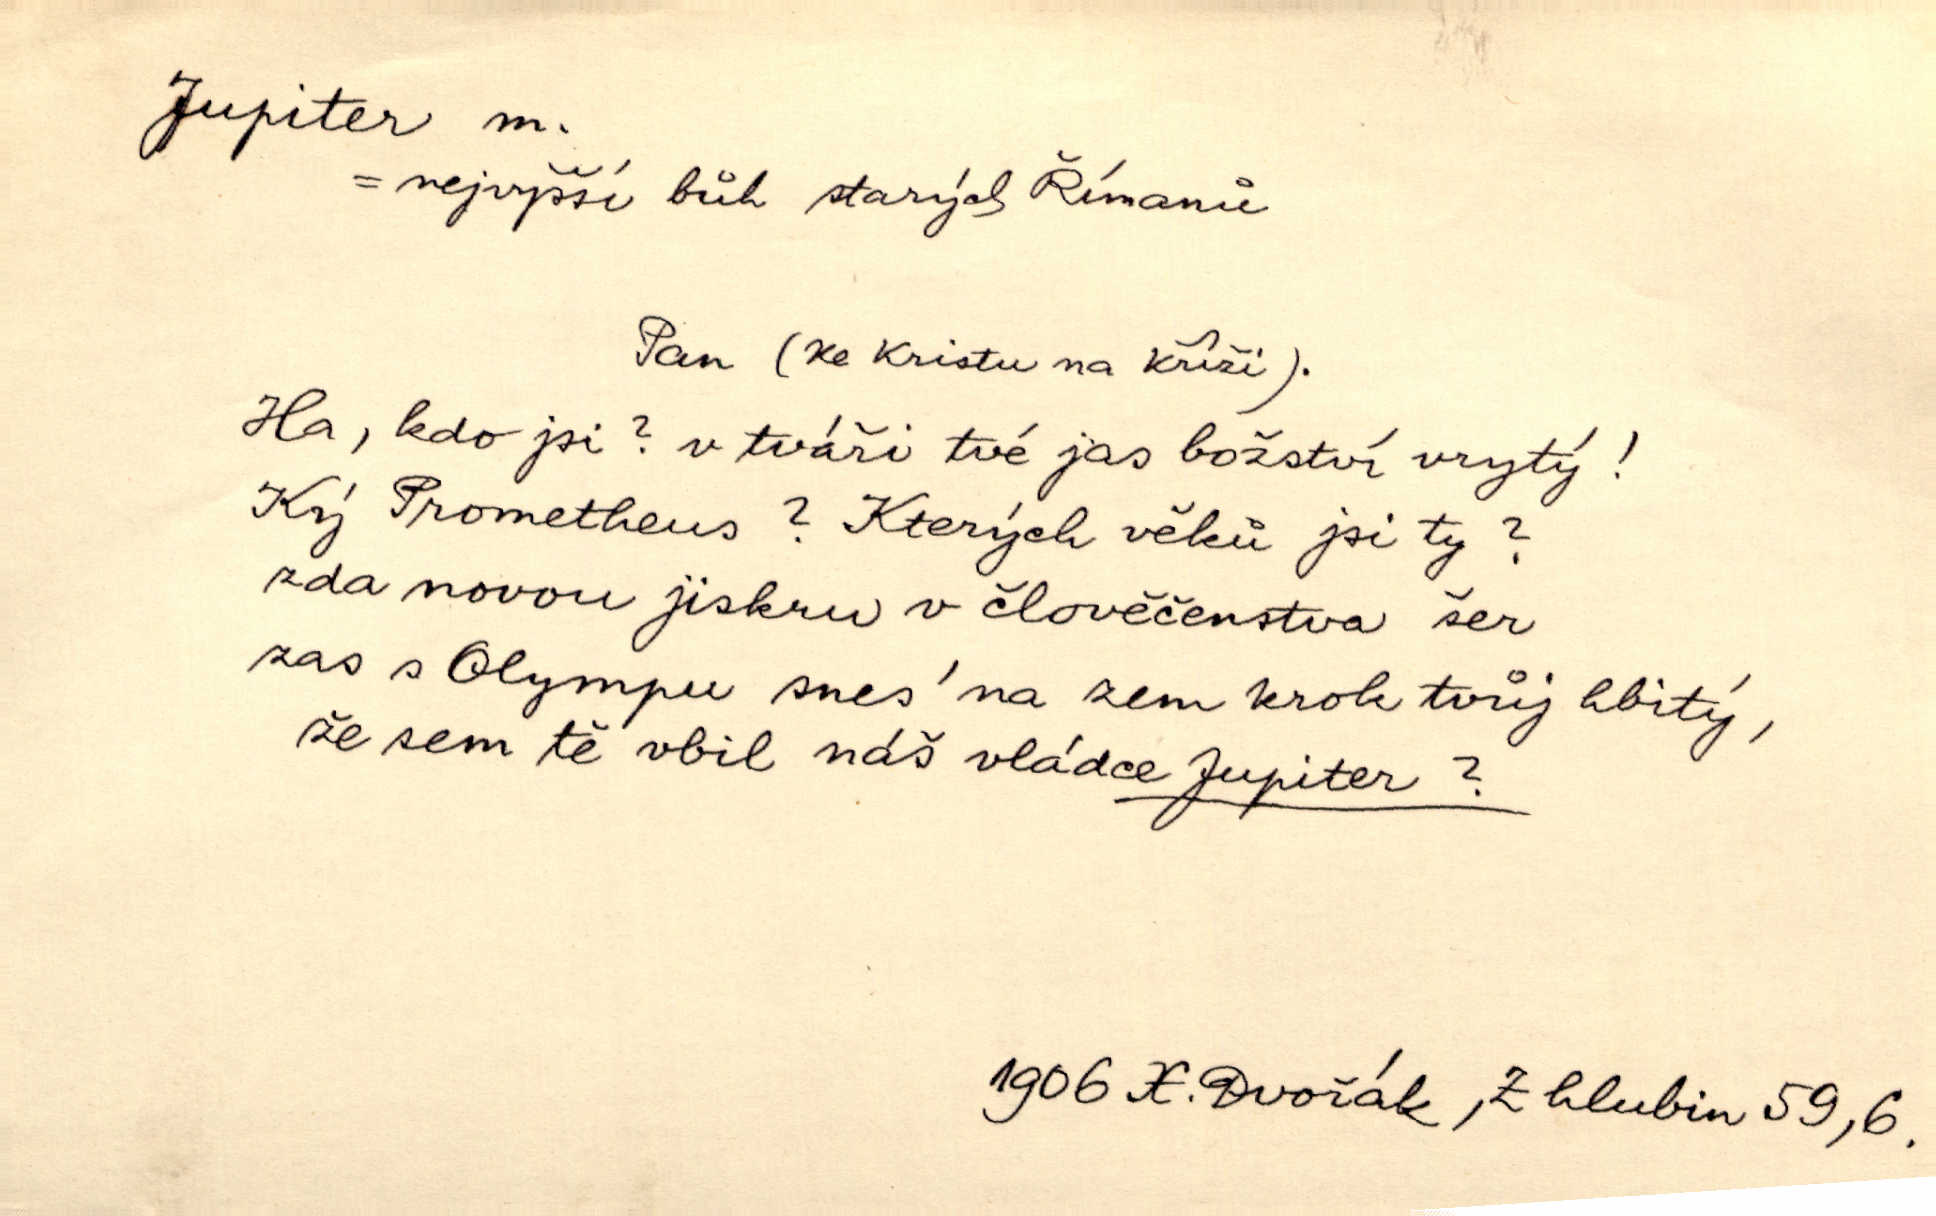 Jupiter m.
= nejvyšší bůh starých Římanů
Pan (ke Kristu na kříži).
Ha, kdo jsi? v tváři tvé jas božství vrytý!
Ký Prometheus? Kterých věků jsi ty?
zda novou jiskru v člověčenstva šer
zas s Olympu snes' na zem krok tvůj hbitý,
že sem tě vbil náš vládce Jupiter?
1906 X. Dvořák, Z hlubin 59,6.